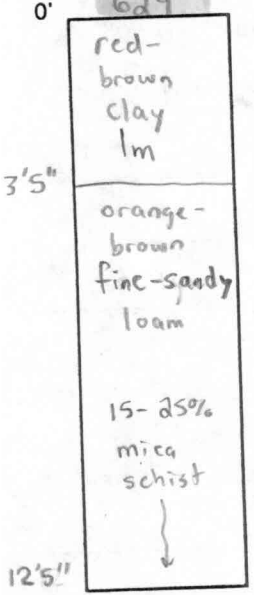 0'
red-
brown
clay
lm
3'5"
orange-
brown
fine-sandy
loam
15-25%
mica
schist
12'5"